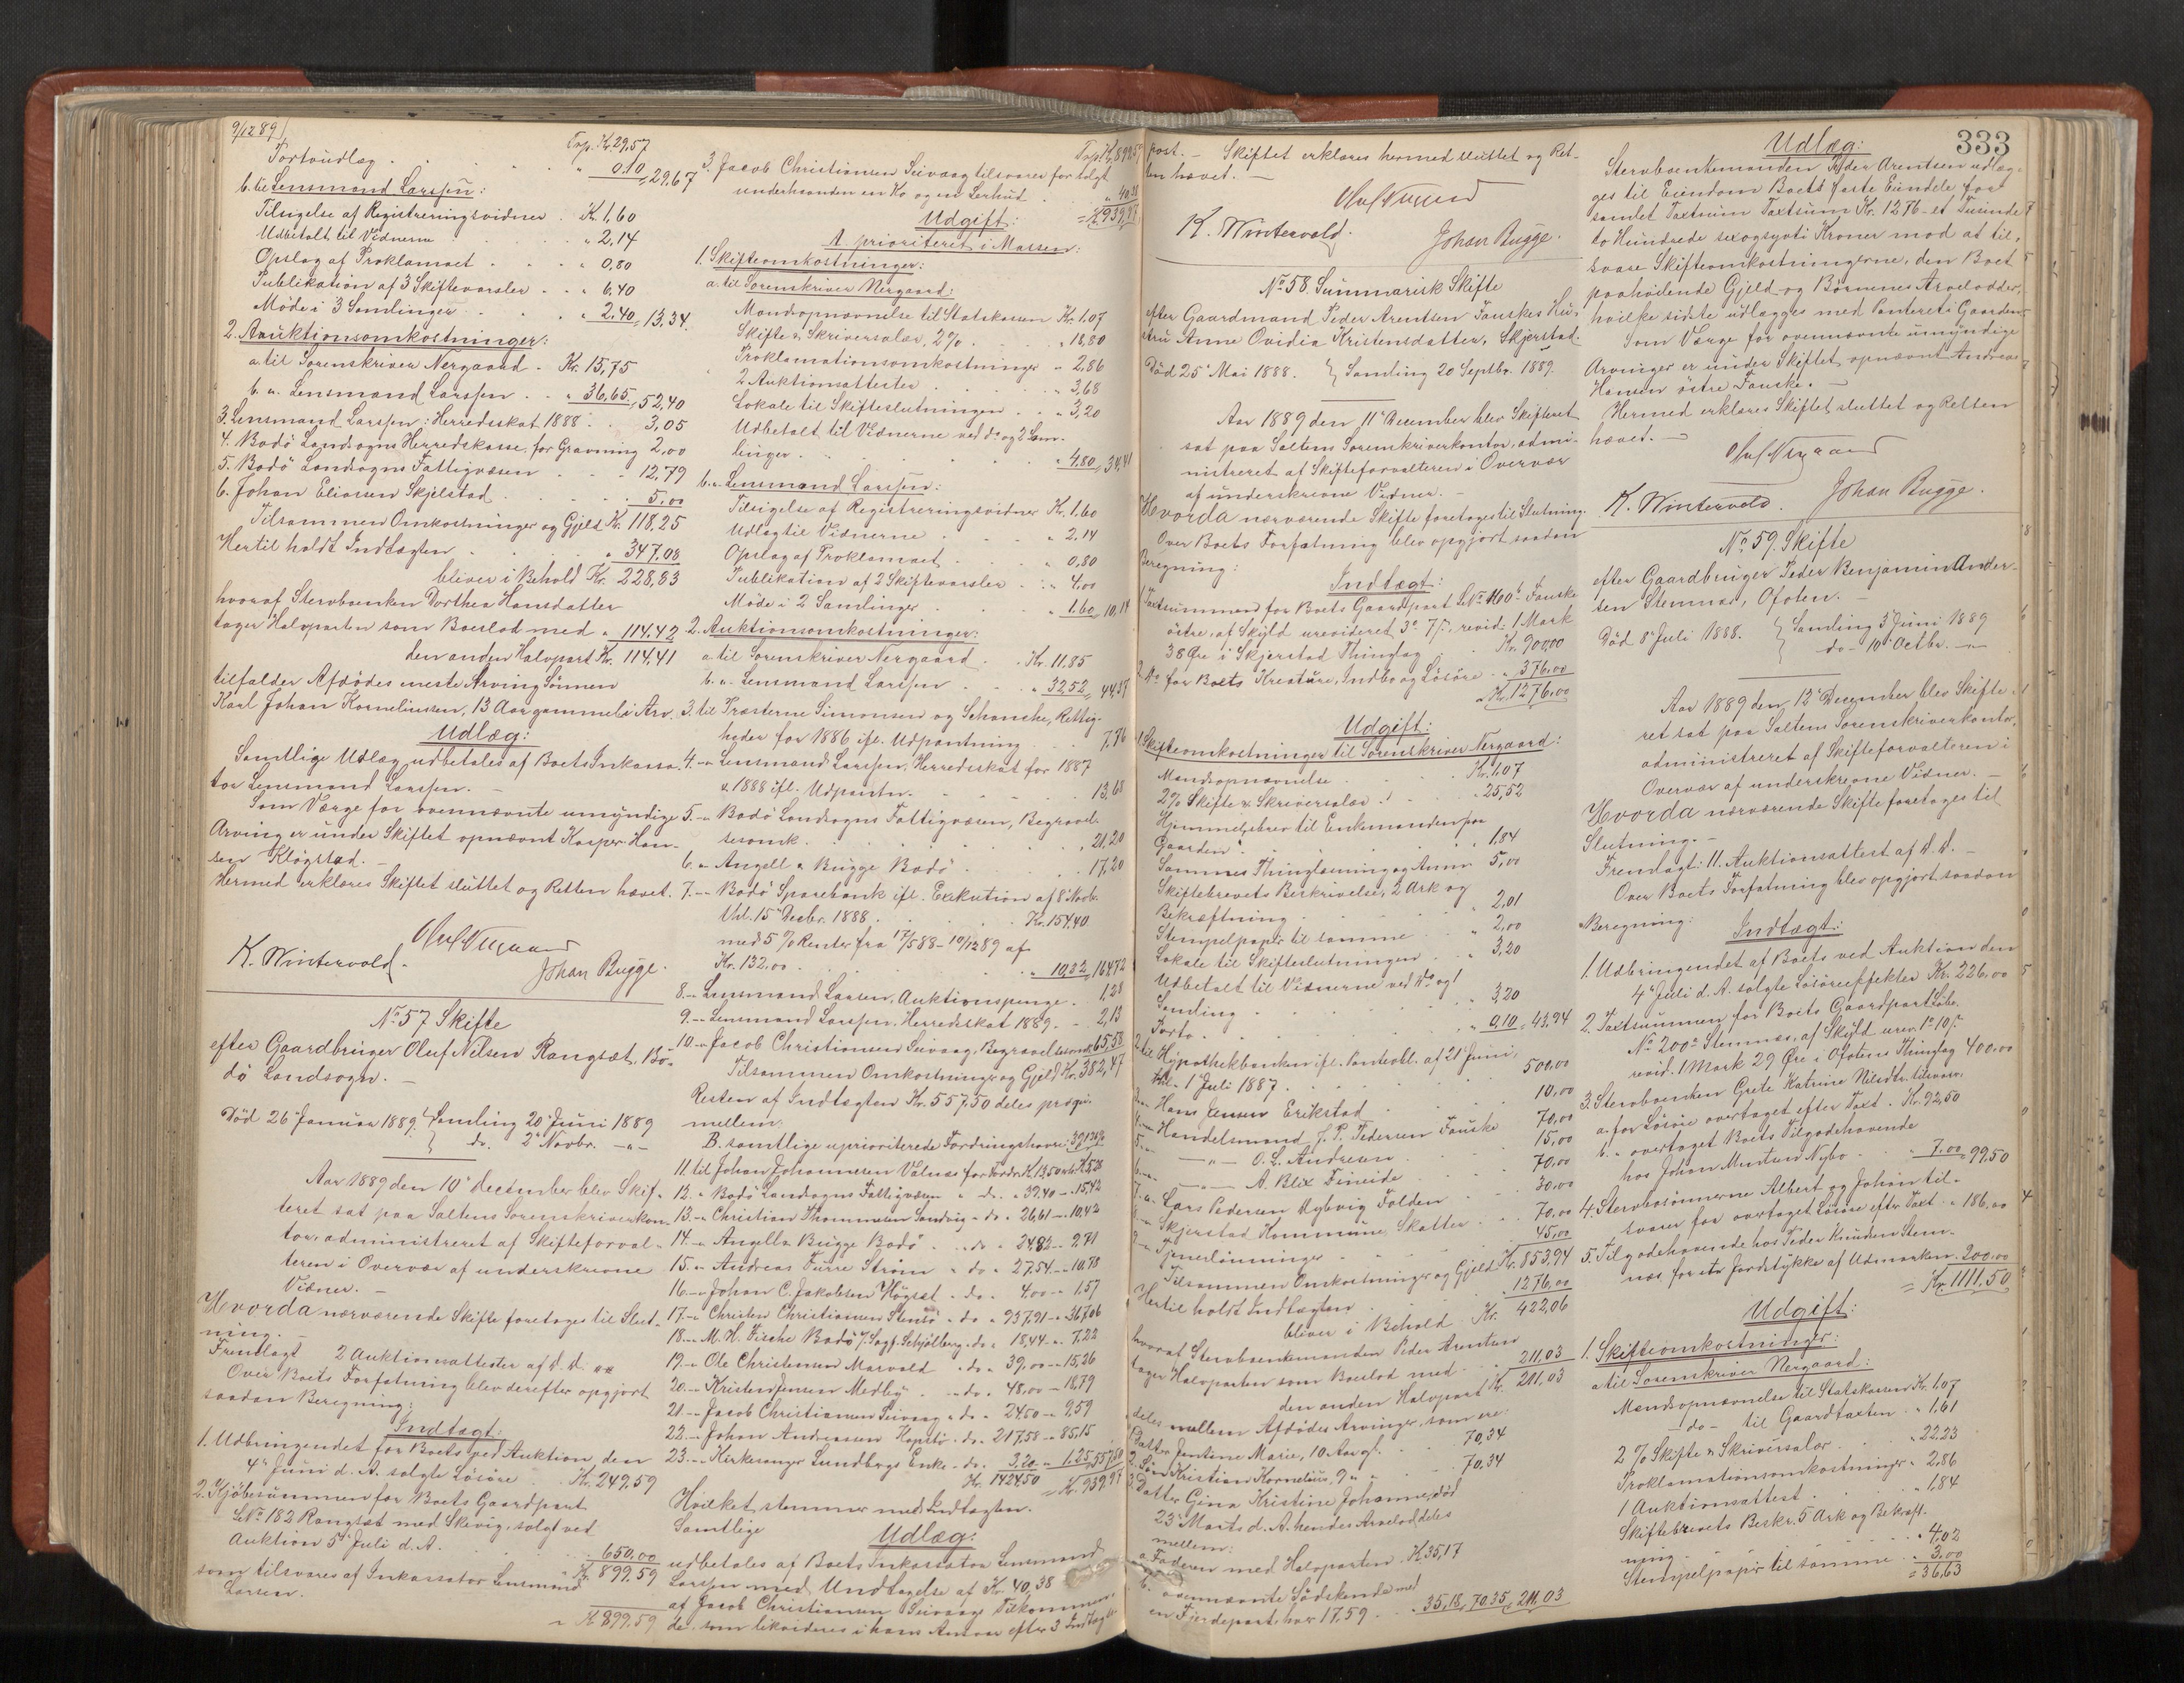 9/12 89
Trsp. Kr. 29,57
Portoudlæg . . . . " 0,10 = 29,67
b. til Lensmand Larssen:
Tilsigelse af Registreringsvidner . Kr. 1,60
Udbetalt til Vidnerne . . " 2,14
Opslag af Proklamaet . . . " 0,80
Publikation af 3 Skiftevarsler . . " 6,40
Møde i 3 Samlinger . . " 2,40 = 13,34.
2. Auktionsomkostninger:
a. til Sorenskriver Nergaard . Kr. 15,75
b. " Lensmand Larssen . . " 36,65 = 52,40
3. Lensmand Larssen: Herredsskat 1888 . . 3,05
4. Bodö Landsogns Herredskasse for Gravning 2,00
5. Bodö Landsogns Fattigvæsen . . 12,79
6. Johan Eliassen Skjelstad . . . 5,00
Tilsammen Omkostninger og Gjeld Kr. 118,25
Hertil holdt Indtægten . . . " 347,08
bliver i Behold Kr. 228,83
hvoraf Stervboenken Dorthea Hansdatter
tager Halvparten som Boeslod med " 114,42
den anden Halvpart Kr. 114,41
tilfalder Afdødes eneste Arving Sønnen
Karl Johan Korneliussen, 13 Aar gammel i Arv.
Udlæg:
Samtlige Udlæg udbetales af Boets Inkassa-
tor Lensmand Larssen. -
Som Værge for ovennævnte umyndige
Arving er under Skiftet opnævnt Kasper Han-
sen Kløgstad. -
Hermed erklæres Skiftet sluttet og Retten hævet.
Oluf Nergaard
K. Wintervold. Johan Bugge.
No. 57 Skifte
efter Gaardbruger Oluf Nilsen Rangsæt, Bo-
dö Landsogn. -
Død 26 Januar 1889. Samling 20 Juni 1889
do. 2 Novbr. - " -
Aar 1889 den 10 December blev Skif-
teret sat paa Saltens Sorenskriverkon-
tor, administreret af Skifteforval-
teren i Overvær af underskrevne
Vidner. -
Hvorda nærværende Skifte foretages til Slut-
ning. -
Fremlagt 2 Auktionsattester af D. D.
Over Boets Forfatning blev derefter opgjort
saadan Beregning:
Indtægt:
1. Udbringendet for Boets ved Auktion den
4 Juni d. A. solgte Løsøre . Kr. 249,59
2. Kjøbesummen for Boets Gaardpart
LNo. 182 Rangsæt med Skivig, solgt ved
Auktion 5 Juli d. A. . . . 650,00
Kr. 899,59
som tilsvares af Inkassator Lensmand
Larsen.
= Kr. 899,59
Trsp. Kr. 899,59
3. Jacob Christiansen Seivaag tilsvarer for solgt
underhaanden en Ko og en Lerhud . . " 40,38
= Kr. 939,97
Udgift:
A. prioriteret i Massen:
1. Skifteomkostninger:
a. til Sorenskriver Nergaard:
Mandsopnævnelse til Statskassen Kr. 1,07
Skifte & Skriversalær, 2% . . " 18,80
Proklamationsomkostninger " 2,86
2 Auktionsattester . . . " 3,68
Lokale til Skifteslutningen . . " 3,20
Udbetalt til Vidnerne ved do. og 2 Sam-
linger . . . " 4,80 = 34,41
b. " Lensmand Larssen:
Tilsigelse af Registreringsvidner Kr. 1.60
Udlæg til Vidnerne . . " 2,14
Opslag af Proklamaet . . " 0,80
Publikation af 2 Skiftevarsler . . " 4,00
Møde i 2 Samlinger . . " 1.60 = 10,14
2. Auktionsomkostninger:
a. til Sorenskriver Nergaard . . Kr. 11.85
b. " Lensmand Larssen . . " 32,52 = 44,37
3. til Præsterne Simonsen og Schanche, Rettig-
heder for 1886 ifl. Udpantning . . 7,76
4. - " Lensmand Larssen, Herredsskat for 1887
& 1888 ifl. Udpantn. . . . 13,68
5. - " Bodö Landsogns Fattigvæsen, Begravel-
sesomk. . . . " 21,20
6. " Angell & Bugge Bodö . . . 17,20
7. - " Bodö Sparebank ifl. Exekution af 8 Novbr.
thl. 15 Decbr. 1888 . . . Kr. 154,40
med 5% Renter fra 17/5 88 - 10/12 89 af
Kr. 132,00 . . . " 10,32 = 164,72
8. - " Lensmand Larsen, Auktionspenge . 1,28
9. - " Lensmand Larssen, Herredsskat 1889 . - 2,13
10. " Jacob Christiansen Seivaag, Begravelsesomk. 65,58
Tilsammen Omkostninger og Gjeld Kr. 382,47
Resten af Indtægten Kr. 557,50 deles
mellem:
B. samtlige uprioriterede Fordringshavere:
11. til Johan Johannesen Valnæs for Fordr. Kr. 13,50 Kr. 5,28
12. " Bodö Landsogns Fattigvæsen " do. " 39.40 - 15,42
13. " Christian Thommesen Sandvig - do - 26,61 - 10,42
14. " Angell & Bugge Bodö . " do - 24,82 - 9,71
15. " Andreas Furre Strøm " do " 27,54 - 10.78
16. " Johan C. Jakobsen Høgset " do - 4,00 - 1,57
17. " Christen Christiansen Stensö " do " 937,91 - 367,06
18. " M. H. Fische Bodö v/ Sagf. Schjølberg " do " 18,44 - 7,22
19. - " Ole Christensen Marvold " do " 39,00 - 15,26
20. - " Kristen Jensen Medby . " do - 48,00 - 18,79
21. - " Jacob Christiansen Seivaag " do " 24,50 - 9,59
22. " Johan Andreassen Hopstö . do. " 217,58 - 85,15
23. - " Kirkesanger Lundbergs Enke - do. " 3,20 " 1,25 = 557,50
Kr. 1424,50 = Kr. 939,97
Hvilket stemmer med Indtægten.
Udlæg:
Samtlige
udbetales af Boets Inkassator Lensmand
Larssen med Undtagelse af Kr. 40,38
af Jacob Christiansen Seivaags Tilkommen-
de, som likvideres i hans Ansvar efter 3 Indtægts-
post. - Skiftet erklæres hermed sluttet og Ret-
ten hævet. -
Oluf Nergaard
K. Wintervold. Johan Bugge.
No. 58. Summarisk Skifte
efter Gaardmand Peder Arentsen Fauskes Hu-
stru Anne Ovidia Kristensdatter, Skjerstad.
Død 25 Mai 1888. Samling 20 Septbr. 1889.
Aar 1889 den 11 December blev Skifteret
sat paa Saltens Sorenskriverkontor, admi-
nistreret af Skifteforvalteren i Overvær
af underskrevne Vidner. -
Hvorda nærværende Skifte foretages til Slutning.
Over Boets Forfatning blev opgjort saadan
Beregning:
Indtægt:
1. Taxtsummen for Boets Gaardpart LNo. 160 Fauske
östre, af Skyld urevideret, revid. 1 Mark
38 Øre i Skjerstad Thinglag . Kr. 900,00
2. do. for Boets Kreature, Indbo og Løsøre . " 376,00
= Kr. 1276,00
Udgift:
1. Skifteomkostninger til Sorenskriver Nergaard:
Mandsopnævnelse . . . Kr. 1,07
2% Skifte & Skriversalær . . " 25,52
Hjemmelsbrev til Enkemanden paa
Gaarden . . . " 1,84
Sammes Thinglæsning og Anm. 5,00
Skiftebrevets Beskrivelse, 2 Ark og
Bekræftning . . . " 2,01
Stempelpapir til samme . . " 2,00
Lokale til Skifteslutningen . . " 3,20
Udbetalt til Vidnerne ved Do. og 1
Samling . . . " 3,20
Porto . . . " 0,10 = 43,94
2. til Hypothekbanken ifl. Pantobl. af 21 Juni,
thl. 1 Juli 1887 . . . 500,00
3. - Hans Jensen Erikstad . . 10,00
4. - Handelsmand J. P. Pedersen Fauske 70,00
5. - " - O. L. Andresen . . 15,00
6. - " - A. Blix Fineide . . 70,00
7. " Lars Pedersen Nybvig Folden . . 30,00
8. " Skjerstad Kommune, Skatter . . 70,00
9. " Tjenerlønninger . . . 45,00
Tilsammen Omkostninger og Gjeld Kr. 853,94
Hertil holdt Indtægten . . 1276,00
bliver i Behold Kr. 422,06
hvoraf Stervboenkemanden Peder Arentsen
tager Halvparten som Boeslod med . . 211,03
den anden Halvpart Kr. 211,03
deles mellem Afdødes Arvinger, som ere:
1. Datter Jentine Marie, 10 Aar gl. . . 70,34
2. Søn Kristian Kornelius, 9 " " 70,34
3. Datter Gina Kristine Johanne, død
23 Marts d. A. hendes Arvelod deles
mellem:
a. Faderen med Halvparten . Kr. 35,17
b. ovennævnte Södskende med
en Fjerdepart hver 17,59 . . " 35,18 = 70,35 = 211,03
333
Udlæg:
Stervboenkemanden Peder Arentsen udlæg-
ges til Eiendom Boets faste Eiendele for
samlet Taxtsum Kr. 1276 - et Tusinde
to Hundrede sexogsyvti Kroner mod at til-
svare Skifteomkostningerne, den Boet
paahvilende Gjeld og Børnenes Arvelodder,
hvilke sidste udlægges med Panteret i Gaarden.
Som Værge for ovennævnte umyndige
Arvinger er under Skiftet opnævnt Andreas
Hansen östre Fauske. -
Hermed erklæres Skiftet sluttet og Retten
hævet. -
Oluf Nergaard
K. Wintervold. Johan Bugge.
No. 59. Skifte
efter Gaardbruger Peder Benjamin Ander-
sen Stemnæs, Ofoten. -
Død 8 Juli 1888. Samling 3 Juni 1889
do - 10 Octbr. - " -
Aar 1889 den 12 December blev Skifte-
ret sat paa Saltens Sorenskriverkontor,
administreret af Skifteforvalteren i
Overvær af underskrevne Vidner. -
Hvorda nærværende Skifte foretages til
Slutning. -
Fremlagt: 11. Auktionsattest af D. D. -
Over Boets Forfatning blev opgjort saadan
Beregning:
Indtægt:
1. Udbringendet af Boets ved Auktion den
4 Juli d. A. solgte Løsøreeffekter Kr. 226,00
2. Taxtsummen for Boets Gaardpart Løbe
No. 200 Stemnæs, af Skyld urev.
revid. 1 Mark 29 Øre i Ofotens Thinglag 400.00
3. Stervboenken Grete Katrine Nilsdtr. tilsvarer
a. for Løsøre overtaget efter Taxt . Kr. 92,50
b. " overtaget Boets Tilgodehavende
hos Johan Mortens Nybo . " 7,00 = 99,50
4. Stervbosønnerne Albert og Johan til-
svarer for overtaget Løsøre efter Taxt . " 186,00
5. Tilgodehavende hos Peder Knudsen Stem-
næs for et Jordstykke af Udmarken . 200,00
= Kr. 1111.50
Udgift:
1. Skifteomkostninger:
a til Sorenskriver Nergaard:
Mandsopnævnelse til Statskassen Kr. 1,07
- do - til Gaardtaxten . " 1,61
2% Skifte & Skriversalær . . " 22,23
Proklamationsomkostninger " 2,86
1 Auktionsattest . . . " 1,84
Skiftebrevets Beskr. 5 Ark og Bekræft-
ning . . . " 4,02
Stempelpapir til samme . . " 3,00
= 36,63